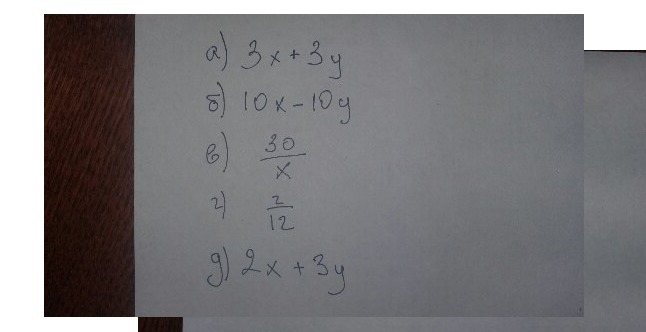 а) 3x + 3y
б) 10x - 10y
в) 30/x
г) z/12
д) 2x + 3y